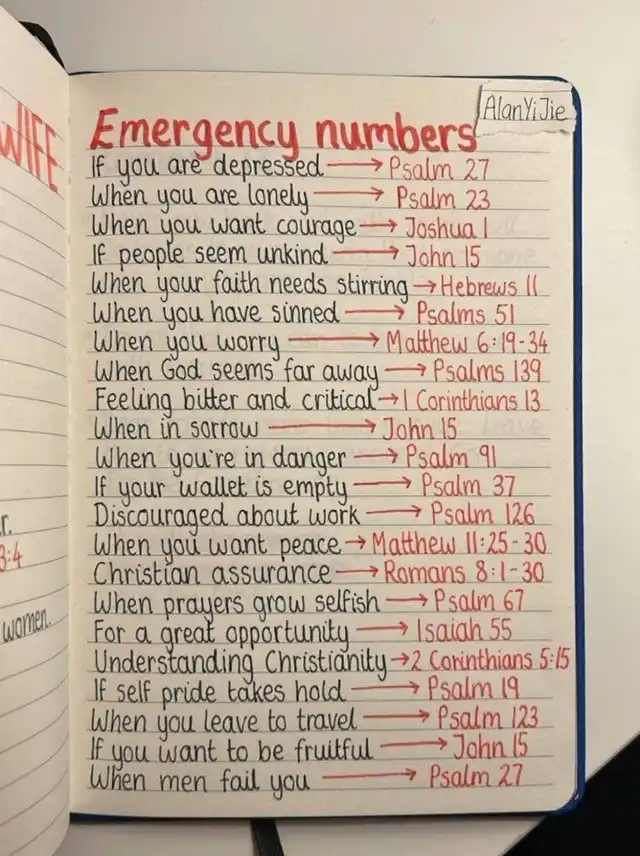 WIFE
r.
3:4
women.
AlanYiJie
Emergency numbers
If you are depressed → Psalm 27
When you are lonely → Psalm 23
When you want courage → Joshua 1
If people seem unkind → John 15
When your faith needs stirring → Hebrews 11
When you have sinned → Psalms 51
When you worry → Matthew 6:19-34
When God seems far away → Psalms 139
Feeling bitter and critical → 1 Corinthians 13
When in sorrow → John 15
When you're in danger → Psalm 91
If your wallet is empty → Psalm 37
Discouraged about work → Psalm 126
When you want peace → Matthew 11:25-30
Christian assurance → Romans 8:1-30
When prayers grow selfish → Psalm 67
For a great opportunity → Isaiah 55
Understanding Christianity → 2 Corinthians 5:15
If self pride takes hold → Psalm 19
When you leave to travel → Psalm 123
If you want to be fruitful → John 15
When men fail you → Psalm 27